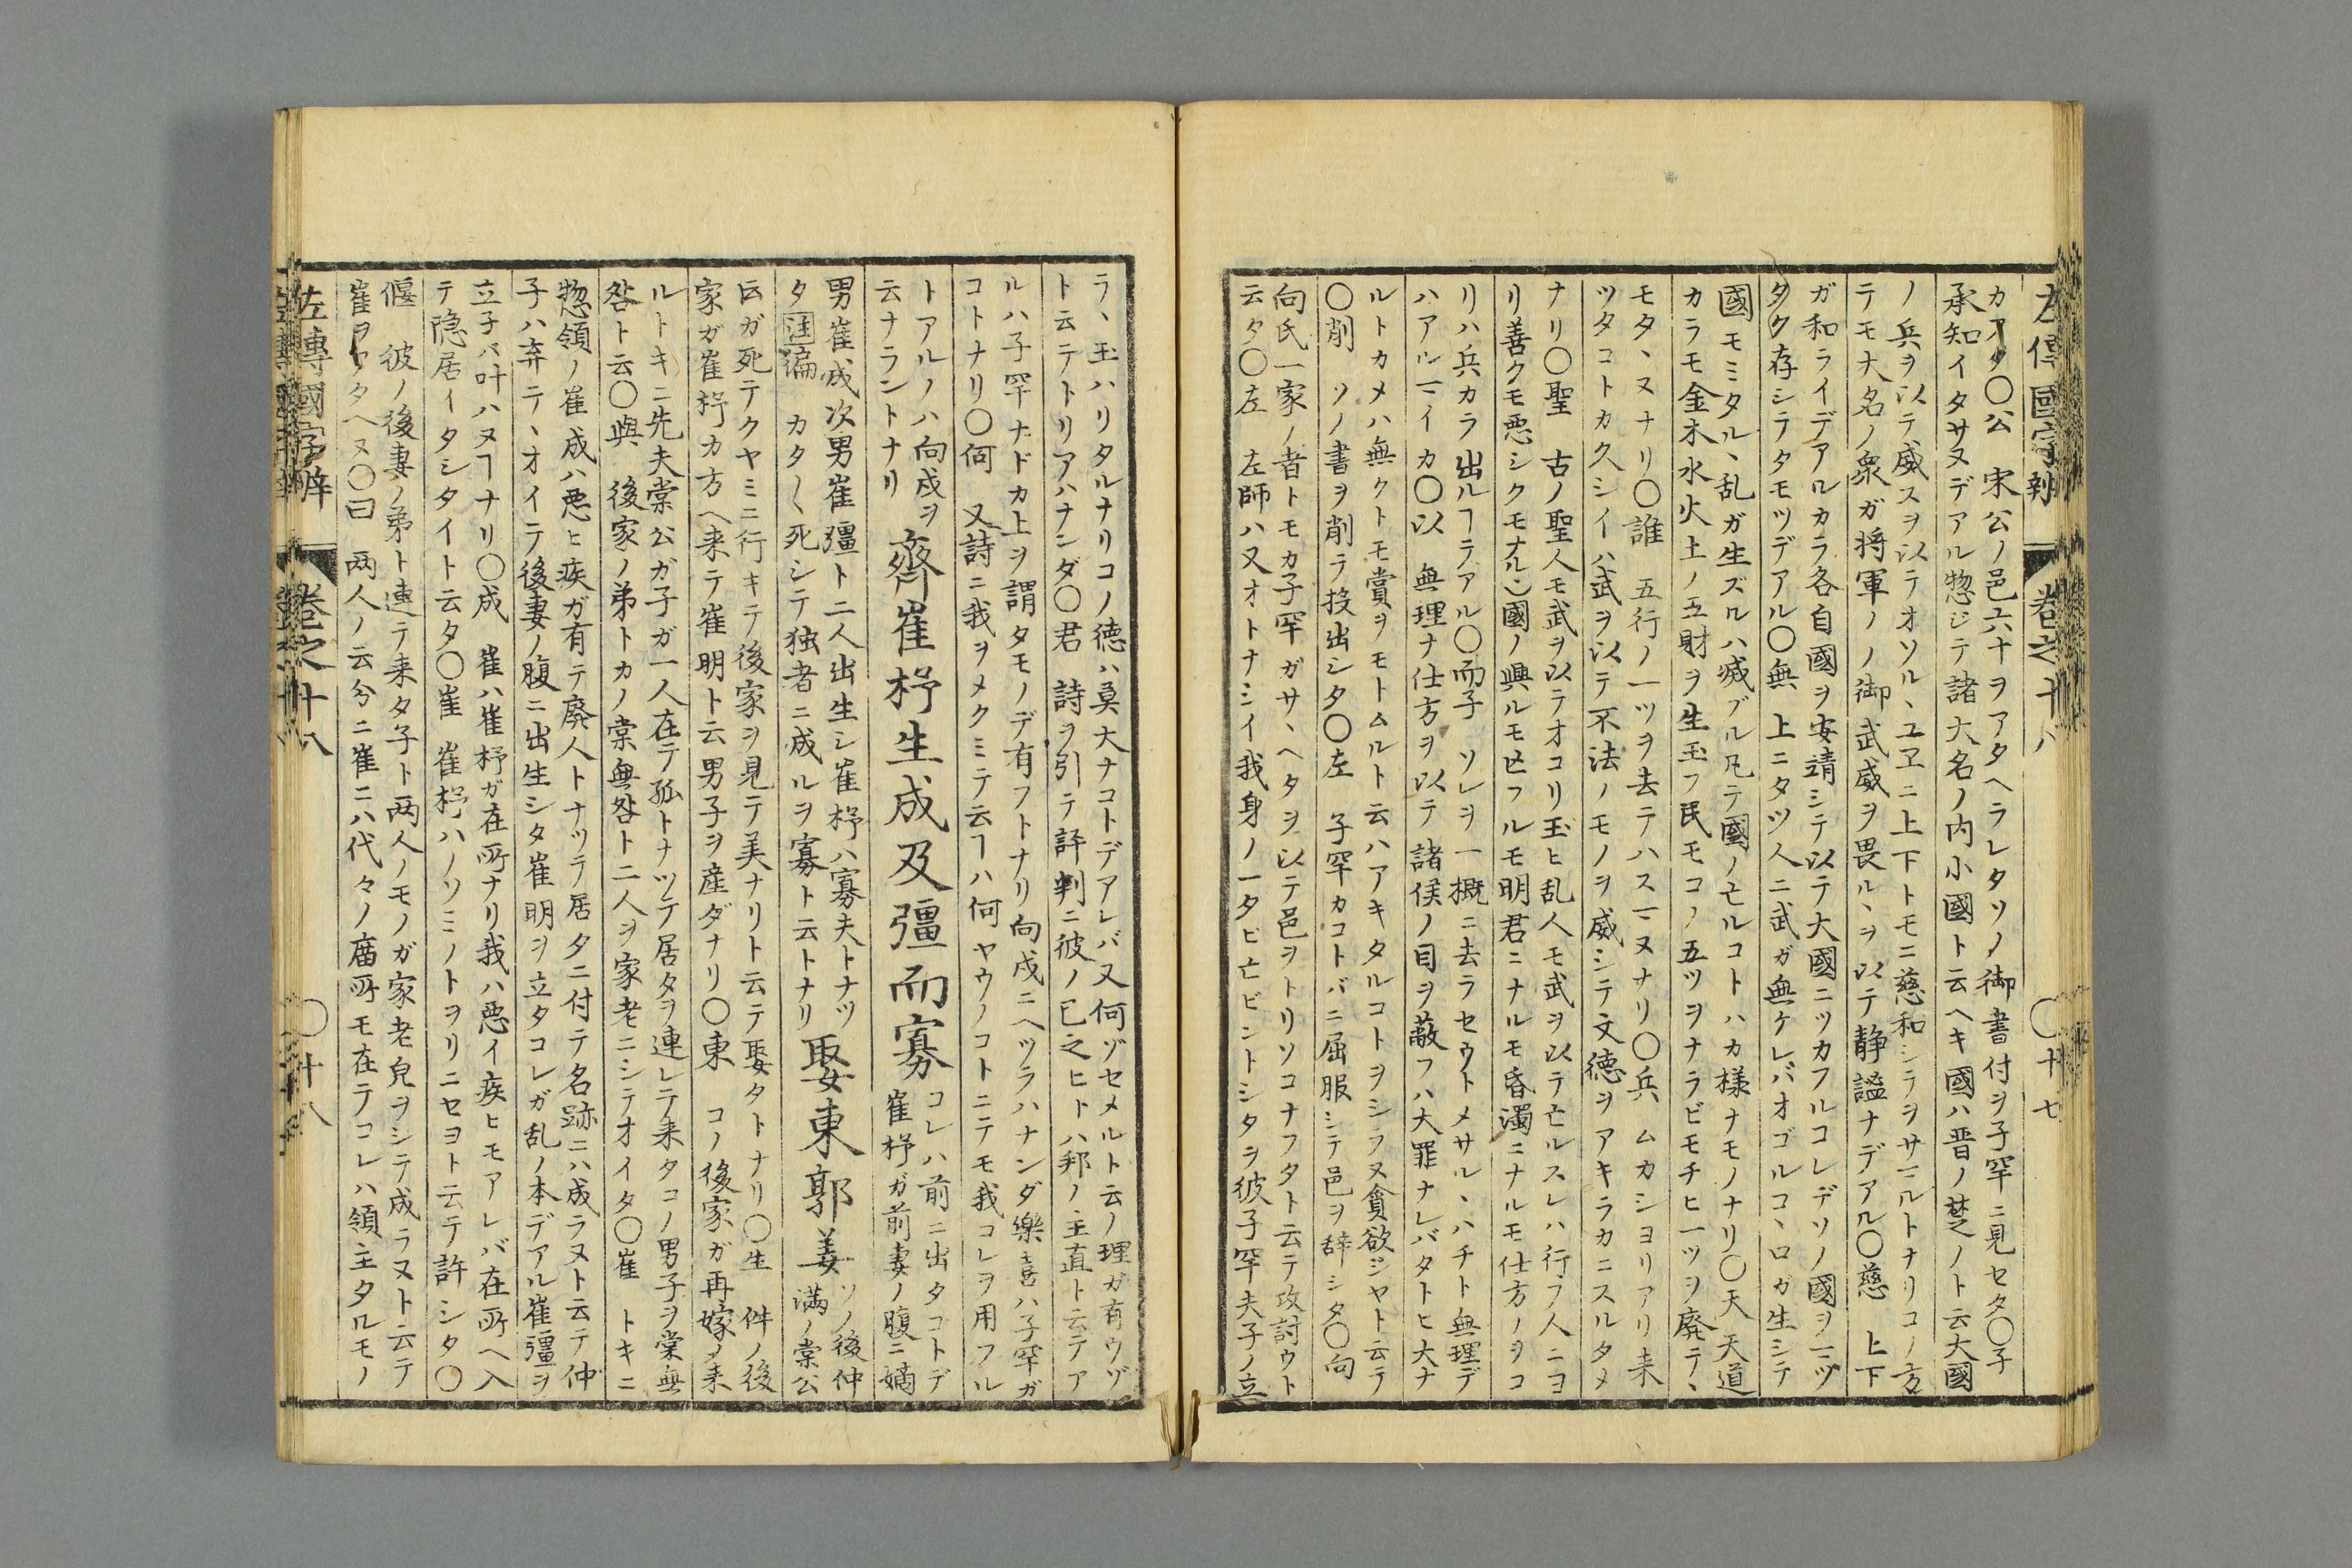 左傳國字辨 卷之十八 〇十七
カイタ〇公 宋公ノ邑六十ヲアタヘラレタソノ御書付ヲ子罕ニ見セタ〇子
承知イタサヌデアル惣ジテ諸大名ノ内小國ト云ヘキ國ハ晋ノ楚ノト云大國
ノ兵ヲ以テ威スヲ以テオソルヽユヱニ上下トモニ慈和シテヲサマルトナリコノ方
テモ大名ノ衆ガ将軍ノノ御武威ヲ畏ルヽヲ以テ静謐ナデアル〇慈 上下
ガ和ライデアルカラ各自國ヲ安靖シテ以テ大國ニツカフルコレデソノ國ヲマヅ
タクク存シテタモツデアル〇無 上ニタツ人ニ武ガ無ケレバオゴルコヽロガ生シテ
國モミタルヽ乱ガ生ズルハ滅ブル凡テ國ノ亡ルコトハカ様ナモノナリ〇天 天道
カラモ金木水火土ノ五財ヲ生玉フ民モコノ五ツヲナラビモチヒ一ツヲ廃テヽ
モタヽヌナリ〇誰 五行ノ一ツヲ去テハスマヌナリ〇兵 ムカシヨリアリ来
ツタコトカ久シイハ武ヲ以テ不法ノモノヲ威シテ文徳ヲアキラカニスルタメ
ナリ〇聖 古ノ聖人モ武ヲ以テオコリ玉ヒ乱人モ武ヲ以テ亡ルスレハ行フ人ニヨ
リ善クモ悪シクモナル𪜈國ノ興ルモ亡フルモ明君ニナルモ昏濁ニナルモ仕方ノヲコ
リハ兵カラ出ルヿテアル〇而子 ソレヲ一概ニ去ラセウトメサルヽハチト無理デ
ハアルマイカ〇以 無理ナ仕方ヲ以テ諸侯ノ目ヲ蔽フハ大罪ナレバタトヒ大ナ
ルトカメハ無クトモ賞ヲモトムルト云ハアキタルコトヲシラヌ貪欲ジヤト云テ
〇削 ソノ書ヲ削テ投出シタ〇左 子罕カコトバニ屈服シテ邑ヲ辞シタ〇向
向氏一家ノ者トモカ子罕ガサヽヘタヲ以テ邑ヲトリソコナフタト云テ攻討ウト
云タ〇左 左師ハ又オトナシイ我身ノ一タビ亡ビントシタヲ彼子罕夫子ノ立
ラヽ玉ハリタルナリコノ徳ハ莫大ナコトデアレバ又何ゾセメルト云ノ理ガ有ウゾ
ト云テトリアハナンダ〇君 詩ヲ引テ評判ニ彼ノ己之ヒトハ邦ノ主直ト云テア
ルハ子罕ナドカ上ヲ謂タモノデ有フトナリ向戍ニヘツラハナンダ樂喜ハ子罕ガ
コトナリ〇何 又詩ニ我ヲメクミテ云ヿハ何ヤウノコトニテモ我コレヲ用フル
トアルノハ向戍ヲ
云ナラントナリ
齊崔杼生成及彊而寡
コレハ前ニ出タコトデ
崔杼ガ前妻ノ腹ニ嫡
男崔成次男崔彊ト二人出生シ崔杼ハ寡夫トナツ
タ 注 偏 カタ〱死シテ独者ニ成ルヲ寡ト云トナリ
娶東郭姜
ソノ後仲
満ノ棠公
ガ死テクヤミニ行キテ後家ヲ見テ美ナリト云テ娶タトナリ〇生 件ノ後
家ガ崔杼カ方ヘ来テ崔明ト云男子ヲ産ダナリ〇東 コノ後家ガ再嫁ノ来
ルトキニ先夫棠公ガ子ガ一人在テ孤トナツテ居タヲ連レテ来タコノ男子ヲ棠無
咎ト云〇與 後家ノ弟トカノ棠無咎ト二人ヲ家老ニシテオイタ〇崔 トキニ
惣領ノ崔成ハ悪ヒ疾ガ有テ廃人トナツテ居タニ付テ名跡ニハ成ラヌト云テ仲
子ハ弃テヽオイテ後妻ノ腹ニ出生シタ崔明ヲ立タコレガ乱ノ本デアル崔彊ヲ
立子バ叶ハヌヿナリ〇成 崔ハ崔杼ガ在所ナリ我ハ悪イ疾ヒモアレバ在所ヘ入
テ隠居イタシタイト云タ〇崔 崔杼ハノソミノトヲリニセヨト云テ許シタ〇
偃 彼ノ後妻ノ弟ト連テ来タ子ト両人ノモノガ家老皃ヲシテ成ラヌト云テ
崔ヲアタヘヌ〇曰 両人ノ云分ニ崔ニハ代々ノ庿所モ在テコレハ領主タルモノ
左傳國字辨 卷之十八 〇十八